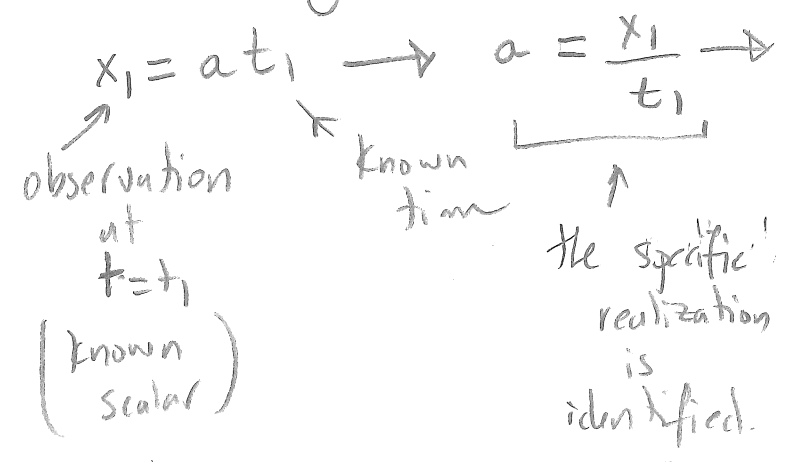 x₁ = a t₁ → a = x₁/t₁ →
observation
at
t = t₁
(known
scalar)
known
time
the "specific"
realization
is
identified.